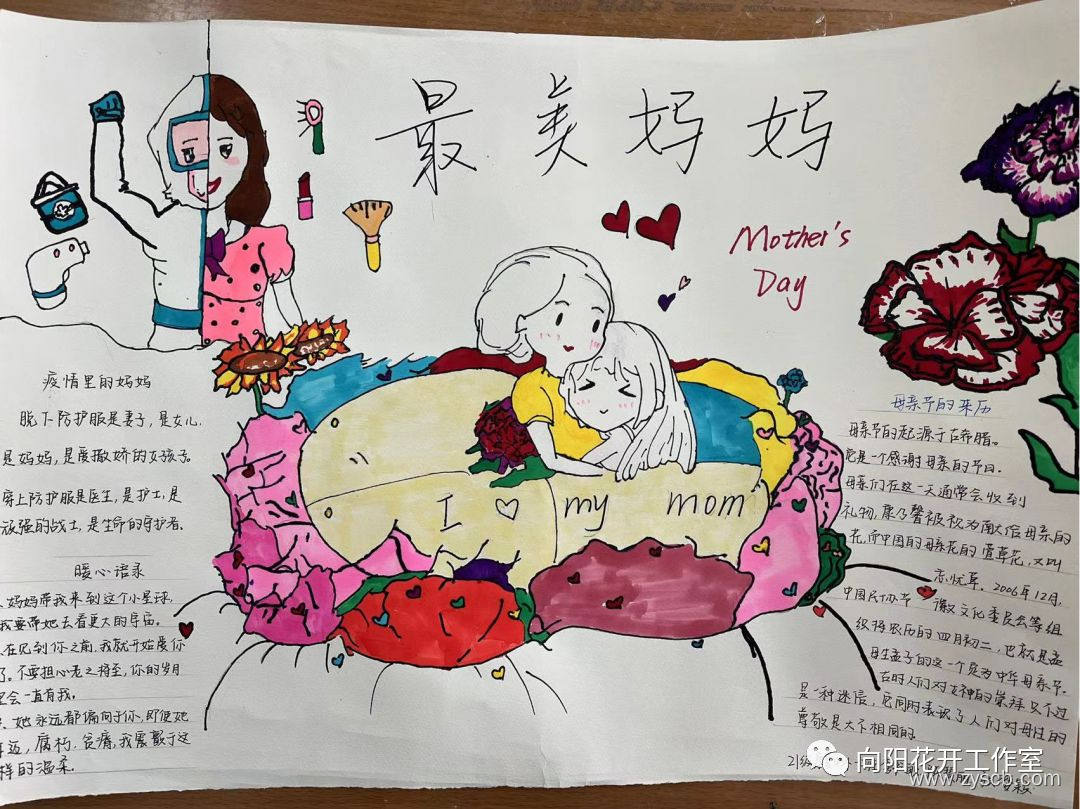 最美妈妈
Mother's
Day
I my mom
疫情里的妈妈
脱下防护服是妻子，是女儿，
是妈妈，是爱撒娇的女孩子。
穿上防护服是医生，是护士，是
顽强的战士，是生命的守护者。
暖心语录
妈妈带我来到这个小星球，
我要带她去看更大的宇宙。
在见到你之前，我就开始爱你
了。不要担心老之将至，你的岁月
里会一直有我。
她永远都偏向于你，即便她
年迈，腐朽，贫瘠，我爱戴于这
样的温柔。
母亲节的来历
母亲节的起源于古希腊。
它是一个感谢母亲的节日。
母亲们在这一天通常会收到
礼物，康乃馨被视为献给母亲的
花，而中国的母亲花的萱草花，又叫
忘忧草。2006年12月，
中国民协节 徽文化委员会等组
织将农历的四月初二，也就是孟
母生孟子的这一个定为中华母亲节。
古时人们对女神的崇拜只不过
是一种迷信，它同时表现了人们对母性的
尊敬是大不相同的
21级
向阳花开工作室
www.zyscp.com